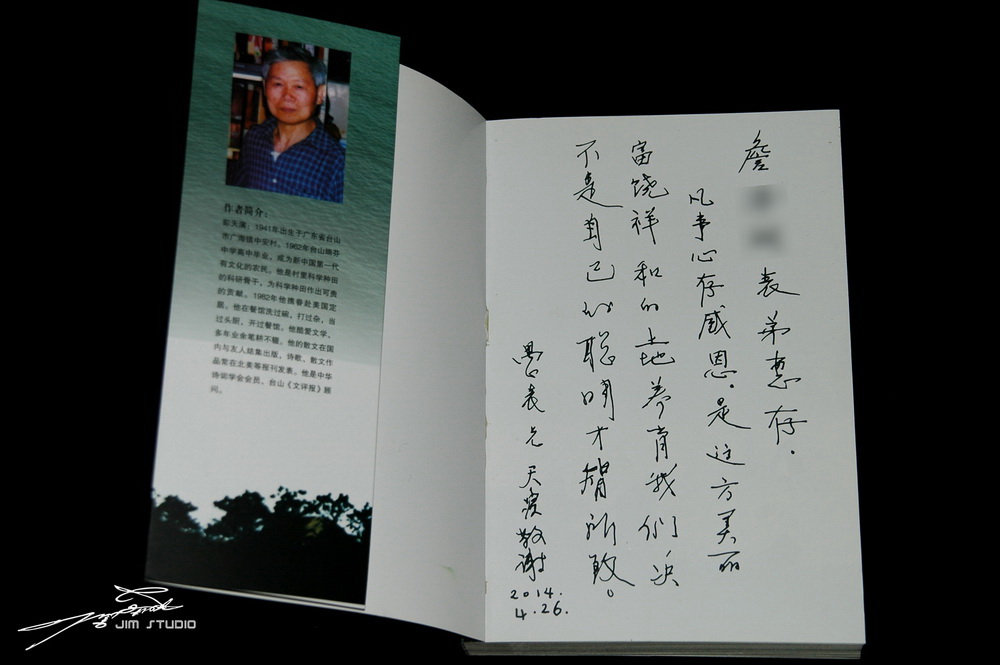 作者简介：
彭天演：1941年出生于广东省台山
市广海镇中安村。1962年台山端芬
中学高中毕业，成为新中国第一代
有文化的农民。他是村里科学种田
的科研骨干，为科学种田作出可贵
的贡献。1982年他携眷赴美国定
居。他在餐馆洗过碗，打过杂，当
过头厨，开过餐馆。他酷爱文学，
多年业余笔耕不辍。他的散文在国
内与友人结集出版，诗歌、散文作
品常在北美等报刊发表。他是中华
诗词学会会员、台山《文评报》顾
问。
詹 表弟惠存．
凡事心存感恩．是这方美丽
富饶祥和的土地养育我们，
不是自己的聪明才智所致。
愚表兄 天演敬谢
2014.
4.26.
JIM STUDIO